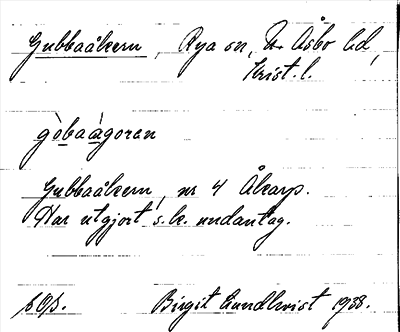 Gubbaåkern, Rya sn, N. Åsbo hd,
Krist. l.
gòbaàgoran
Gubbaåkern, nr 4 Åkarp.
Har utgjort s.k. undantag.
Birgit Lundkvist 1938.